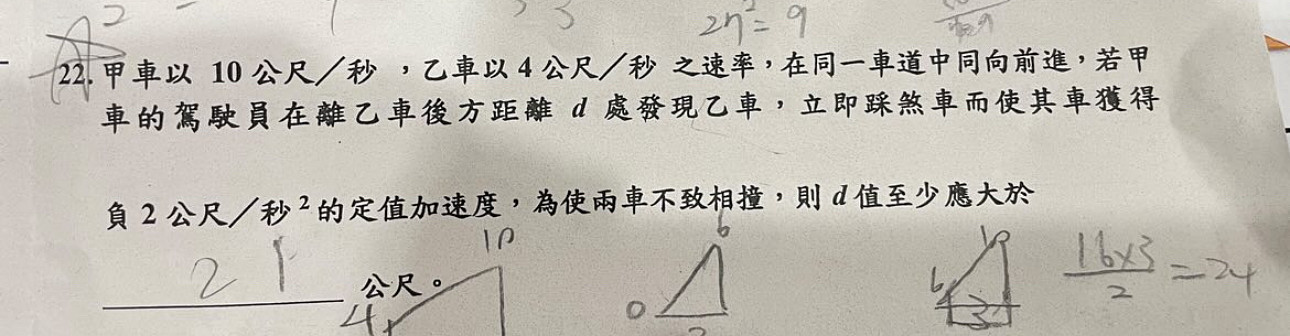 2η²=9
22. 甲車以 10 公尺／秒 ，乙車以 4 公尺／秒 之速率，在同一車道中同向前進，若甲
車的駕駛員在離乙車後方距離 d 處發現乙車，立即踩煞車而使其車獲得
負 2 公尺／秒² 的定值加速度，為使兩車不致相撞，則 d 值至少應大於
21 公尺。
10
4
6
0
10
6
3
16×3/2=24